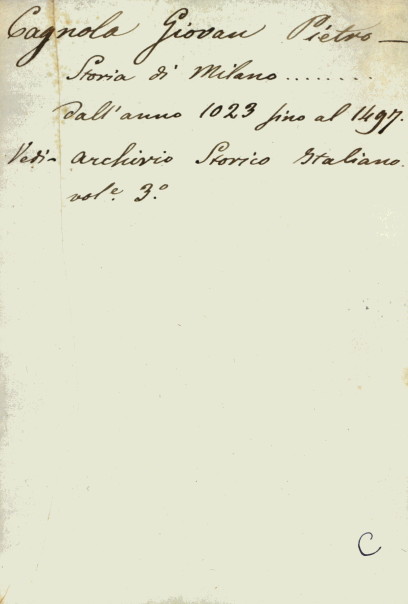 Cagnola Giovan Pietro —
Storia di Milano ........
dall'anno 1023 sino al 1497.
Vedi - Archivio Storico Italiano.
vol.e 3.o
C